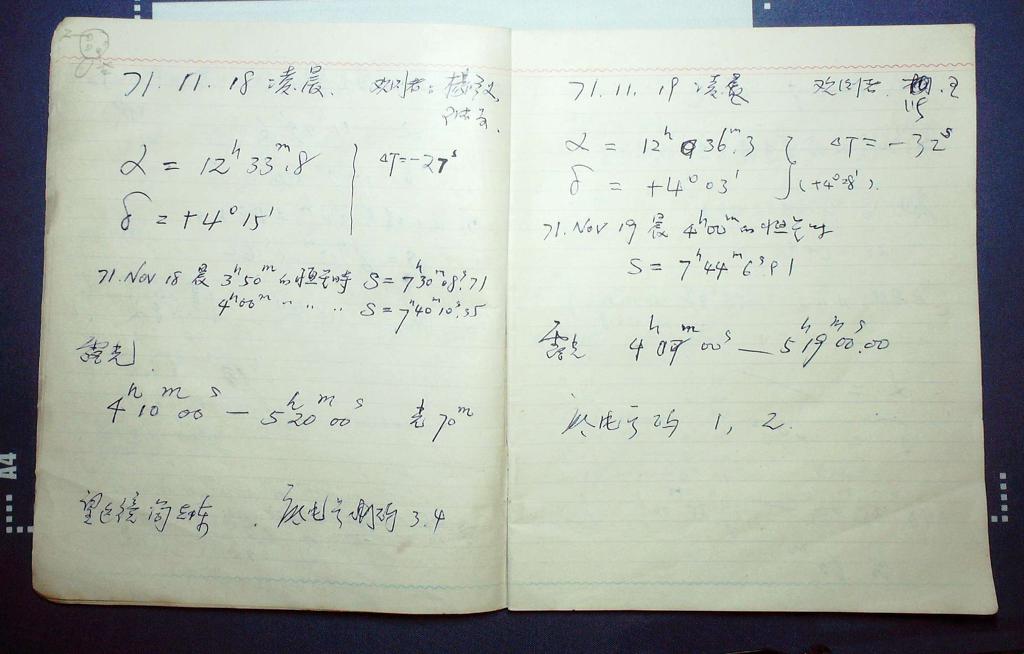 71.11.18 凌晨. 观测者:
α = 12ʰ 33ᵐ.8
ΔT = -27ˢ
δ = +4° 15′
71.Nov 18 晨 3ʰ50ᵐ的恒星時 S = 7ʰ30ᵐ08ˢ.71
4ʰ00ᵐ 〃 〃 〃 S = 7ʰ40ᵐ10ˢ.35
露光
4ʰ 10ᵐ 00ˢ — 5ʰ 20ᵐ 00ˢ 70ᵐ
望远镜筒在东. 底片号码 3.4
71.11.19 凌晨 观测者
α = 12ʰ 36ᵐ.3
ΔT = -32ˢ
δ = +4° 03′
(+4°28′).
71.Nov 19 晨 4ʰ00ᵐ的恒星时
S = 7ʰ44ᵐ6ˢ.91
露光 4ʰ 09ᵐ 00ˢ — 5ʰ 19ᵐ 00ˢ.00
底片号码 1, 2.
A4